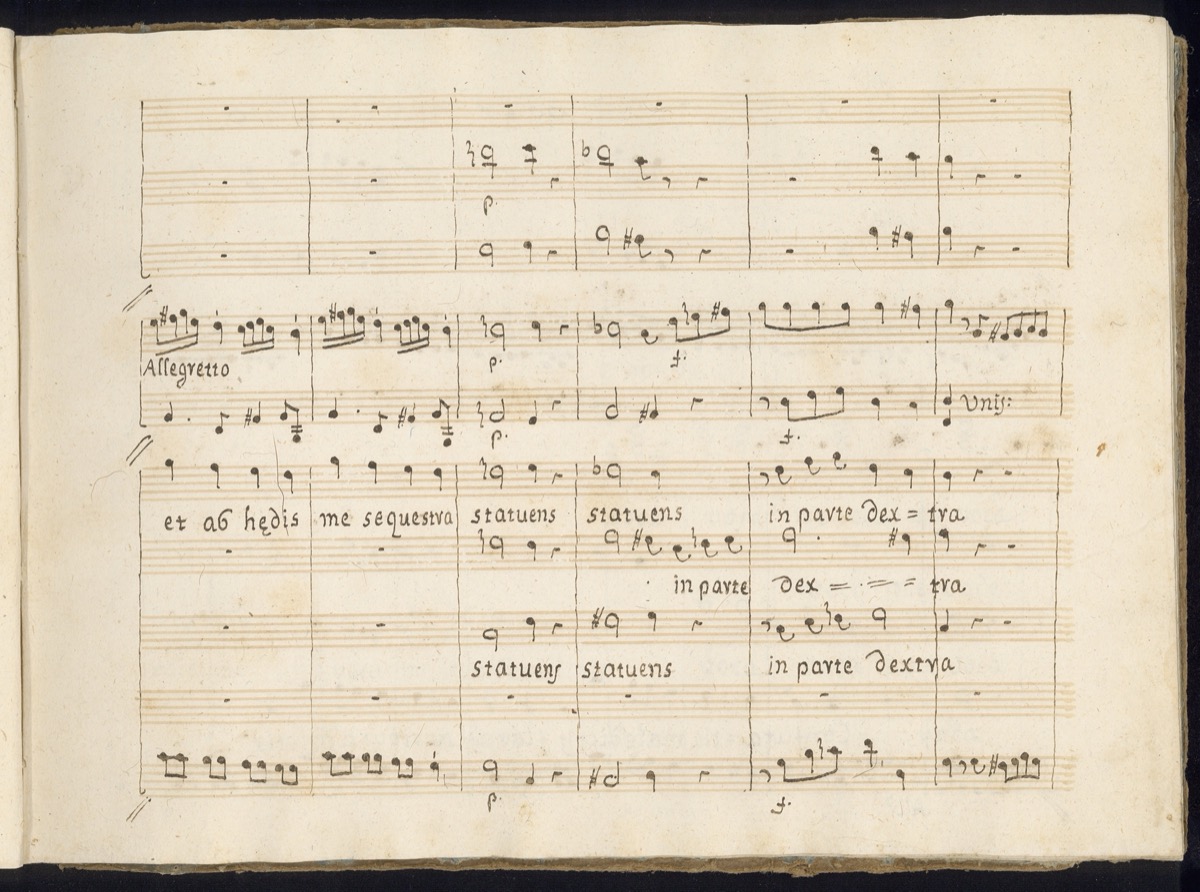 p.
Allegretto
p. f.
Unis:
p. f.
et ab hędis me sequestra statuens statuens in parte dex = tra
in parte dex = = = tra
statuens statuens in parte dextra
p. f.